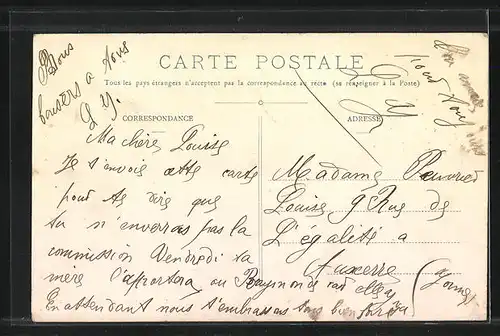 Bons
baisers a tous
L Y.
CARTE POSTALE
Tous les pays étrangers n'acceptent pas la correspondance au recto (se renseigner à la Poste)
CORRESPONDANCE
ADRESSE
Ma chère Louise
Je t'envoie cette carte
pour te dire que
tu n'enverras pas la
commission Vendredi ta
mère l'apportera ou Raymonde
En attendant nous t'embrassons tous bien fort
Madame
Louise 9 Rue de
L'égalité a
Auxerre
(Yonne)